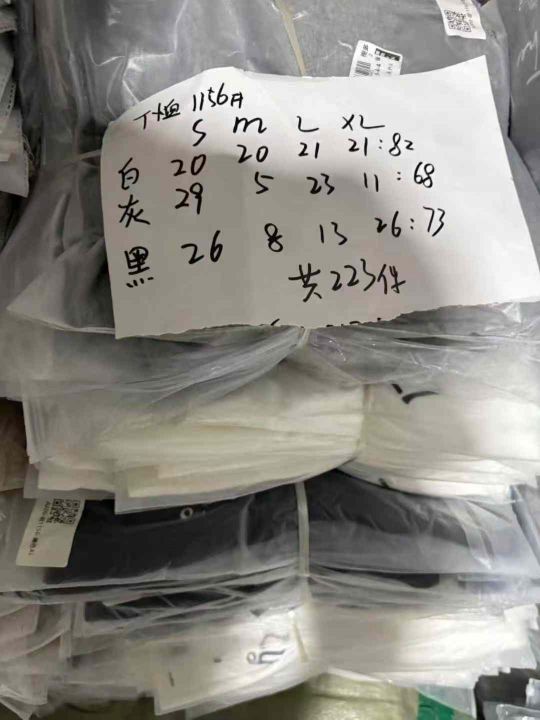 T恤 1156月
S M L XL
白 20 20 21 21:82
灰 29 5 23 11:68
黑 26 8 13 26:73
共223件